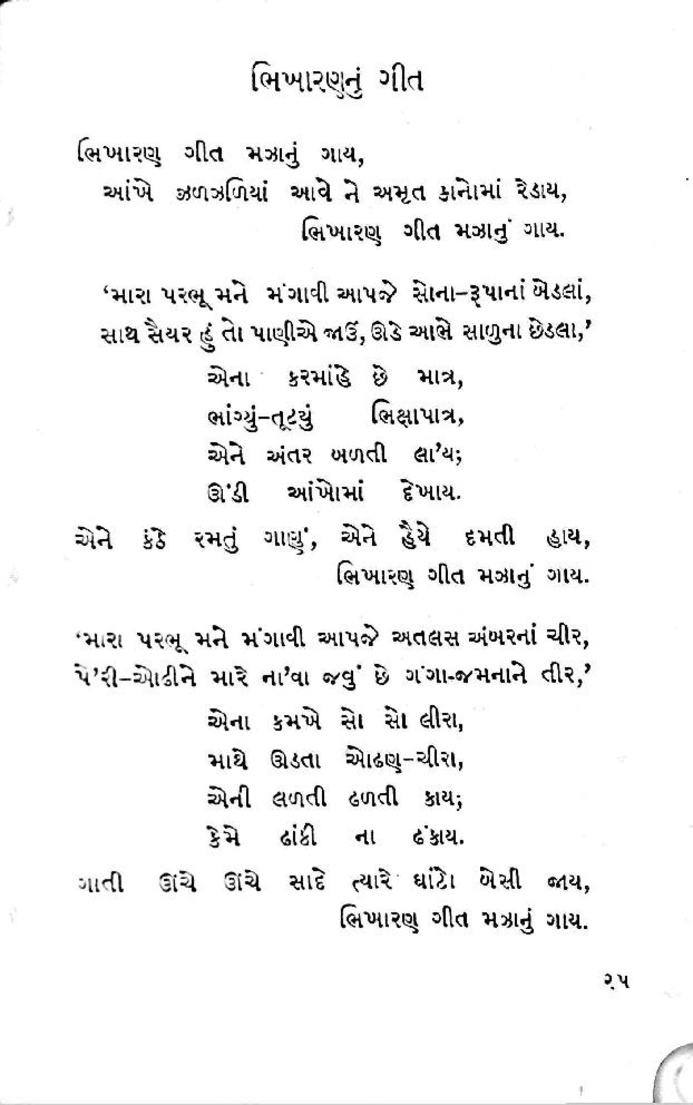 ભિખારણનું ગીત
ભિખારણ ગીત મઝાનું ગાય,
આંખે ઝળઝળિયાં આવે ને અમૃત કાનોમાં રેડાય,
ભિખારણ ગીત મઝાનું ગાય.
‘મારા પરભૂ મને મંગાવી આપજે સોના-રૂપાનાં બેડલાં,
સાથ સૈયર હું તો પાણીએ જાઉં, ઊડે આભે સાળુના છેડલા,’
એના કરમાંહે છે માત્ર,
ભાંગ્યું-તૂટ્યું ભિક્ષાપાત્ર,
એને અંતર બળતી લા’ય;
ઊંડી આંખોમાં દેખાય.
એને કંઠે રમતું ગાણું, એને હૈયે દમતી હાય,
ભિખારણ ગીત મઝાનું ગાય.
‘મારા પરભૂ મને મંગાવી આપજે અતલસ અંબરનાં ચીર,
પે’રી-ઓઢીને મારે ના’વા જવું છે ગંગા-જમનાને તીર,’
એના કમખે સો સો લીરા,
માથે ઊડતા ઓઢણ-ચીરા,
એની લળતી ઢળતી કાય;
કેમે ઢાંકી ના ઢંકાય.
ગાતી ઊંચે ઊંચે સાદે ત્યારે ઘાંટો બેસી જાય,
ભિખારણ ગીત મઝાનું ગાય.
૨૫